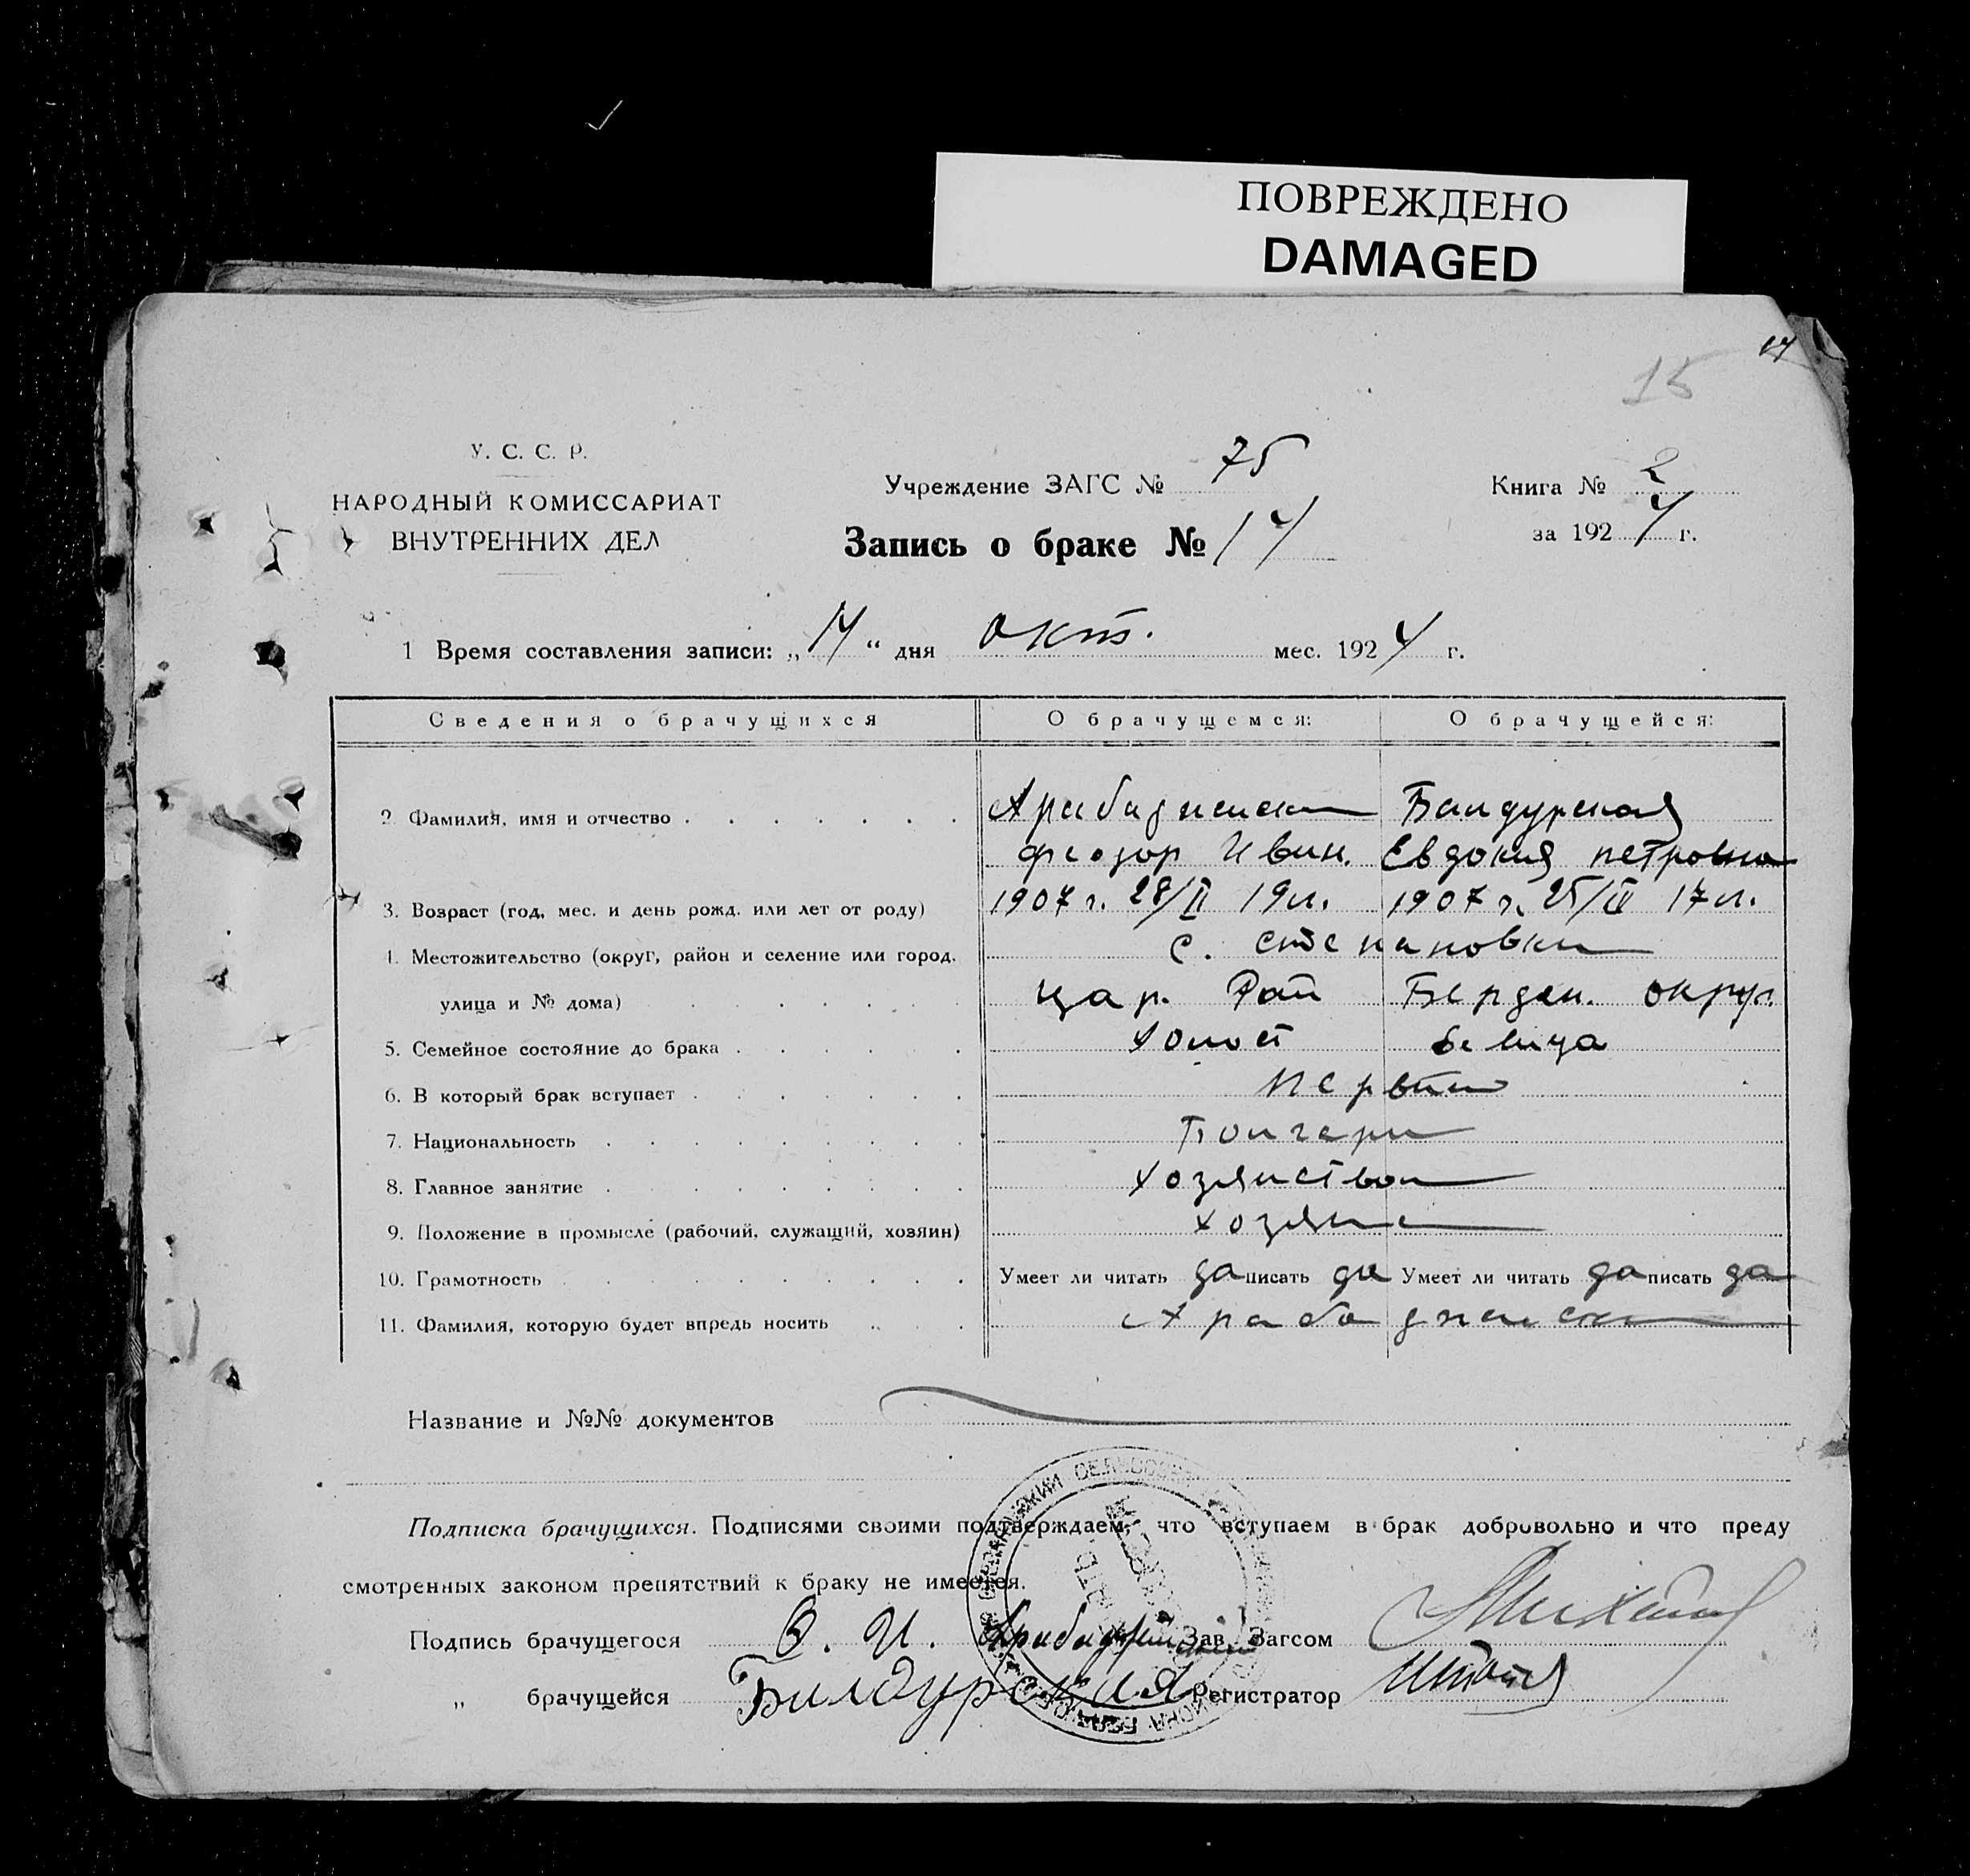 ПОВРЕЖДЕНО
DAMAGED
14
15
У. С. С. Р.
НАРОДНЫЙ КОМИССАРИАТ
ВНУТРЕННИХ ДЕЛ
Учреждение ЗАГС № 75
Запись о браке № 14
Книга № 2
за 1924 г.
1 Время составления записи: „14“ дня окт. мес. 1924 г.
Сведения о брачущихся О брачущемся: О брачущейся:
2. Фамилия, имя и отчество Арабаджиски Бандурская
Феодор Иван. Евдокия Петровна
3. Возраст (год, мес. и день рожд. или лет от роду) 1907 г. 28/II 19 л. 1907 г. 25/ 17 л.
4. Местожительство (округ, район и селение или город, с. Степановки
улица и № дома) Цар. Рай Бердян. округ.
5. Семейное состояние до брака Холост девица
6. В который брак вступает первый
7. Национальность Болгары
8. Главное занятие Хозяйством
9. Положение в промысле (рабочий, служащий, хозяин) хозяин
10. Грамотность Умеет ли читать да писать да Умеет ли читать да писать да
11. Фамилия, которую будет впредь носить Арабаджиски
Название и №№ документов
Подписка брачущихся. Подписями своими подтверждаем, что вступаем в брак добровольно и что преду
смотренных законом препятствий к браку не имеется.
Подпись брачущегося Ф. И. Зав. Загсом
„ брачущейся Бандурская Регистратор